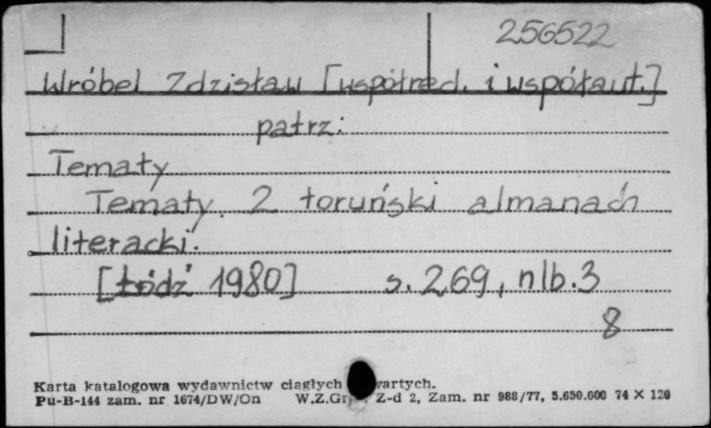 256522
Wróbel Zdzisław [współred. i współaut.]
patrz:
Tematy
Tematy. 2 toruński almanach
literacki.
[Łódź 1980] s. 269, nlb. 3
8
Karta katalogowa wydawnictw ciągłych wartych.
Pu-B-144 zam. nr 1674/DW/On W.Z.Gr Z-d 2, Zam. nr 988/77, 5.650.000 74 X 120